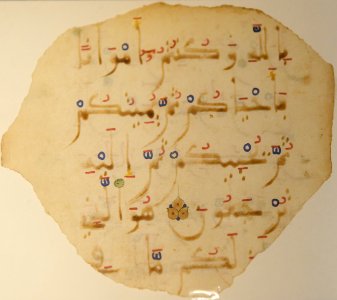 بالله وكنتم أموتا
فأحياكم ثم يميتكم
ثم يحييكم ثم إليه
ترجعون هو الذي
لكم ما في